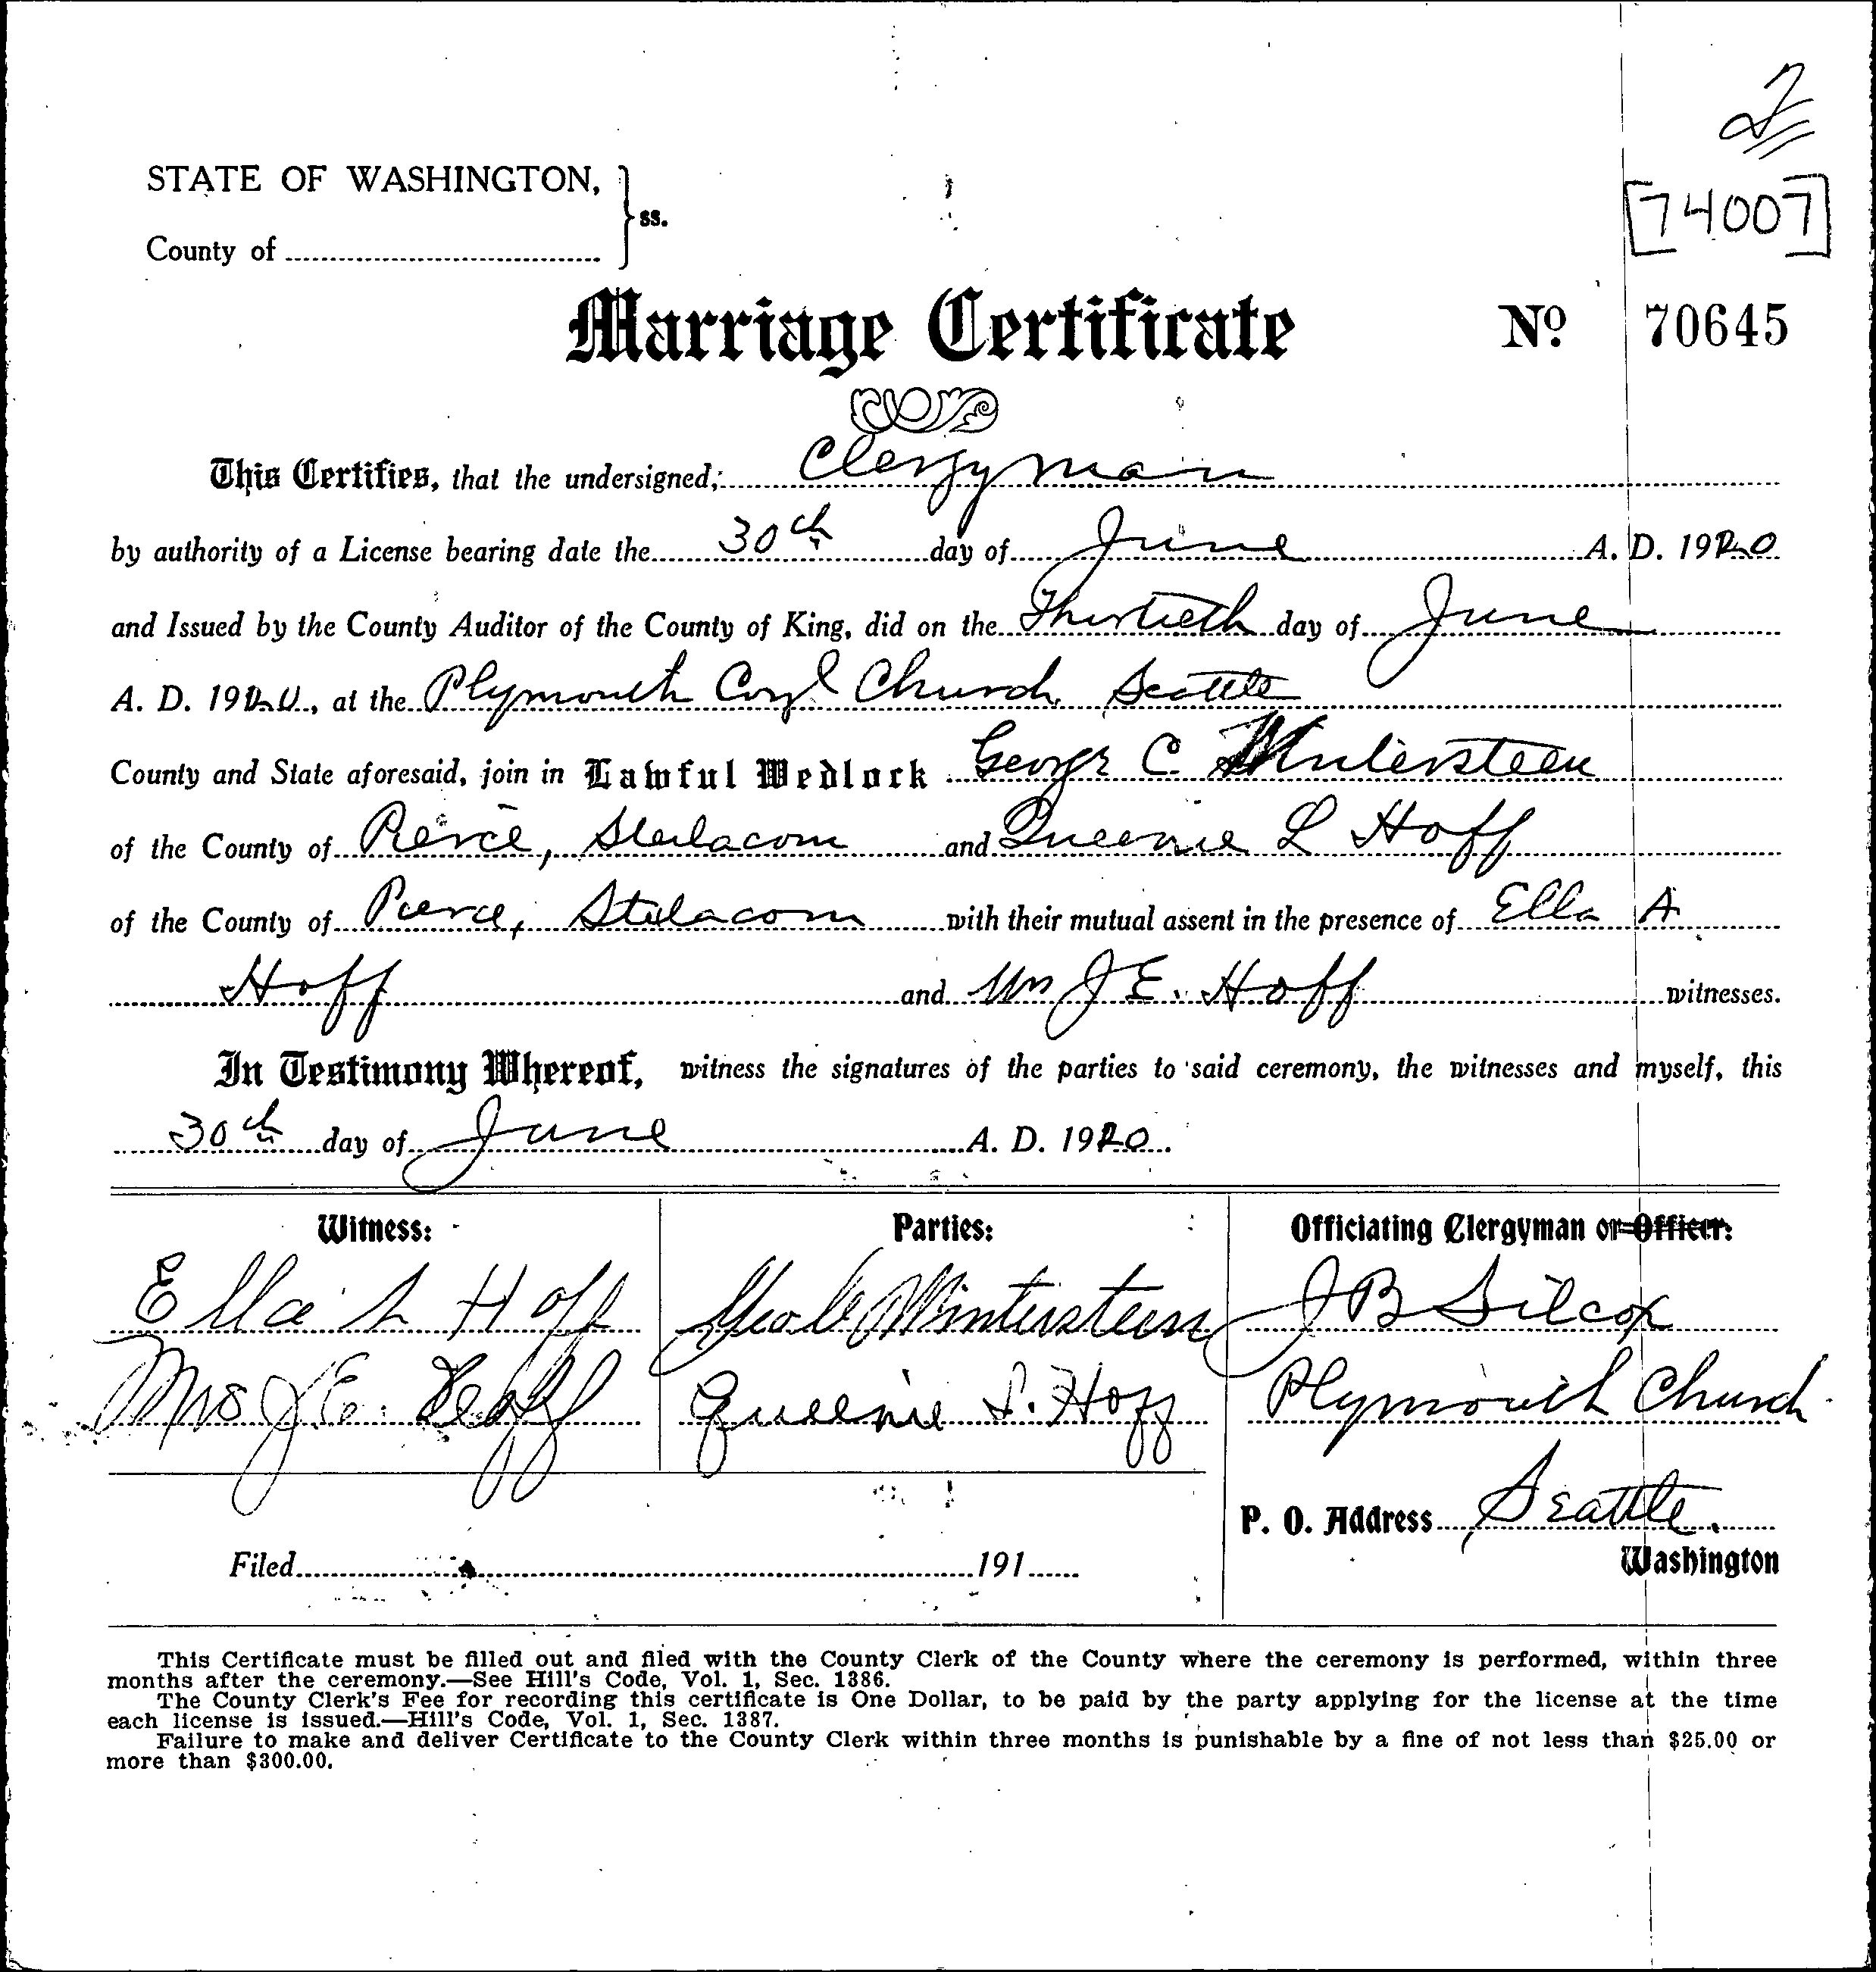 2
[74007]
STATE OF WASHINGTON,
ss.
County of
Marriage Certificate Nº 70645
This Certifies, that the undersigned, Clergyman
by authority of a License bearing date the 30th day of June A. D. 1920
and Issued by the County Auditor of the County of King, did on the Thirtieth day of June
A. D. 1920, at the Plymouth Congl Church, Seattle
County and State aforesaid, join in Lawful Wedlock George C. Wintersteen
of the County of Pierce, Steilacom and Queenie L Hoff
of the County of Pierce, Steilacom with their mutual assent in the presence of Ella A
Hoff and Mrs J E. Hoff witnesses.
In Testimony Whereof, witness the signatures of the parties to said ceremony, the witnesses and myself, this
30th day of June A. D. 1920.
Witness: Parties: Officiating Clergyman or Officer:
Ella Hoff Geo C Wintersteen J B Silcox
Mrs J.E. Hoff Queenie L. Hoff Plymouth Church
P. O. Address Seattle.
Filed 191 Washington
This Certificate must be filled out and filed with the County Clerk of the County where the ceremony is performed, within three
months after the ceremony.—See Hill's Code, Vol. 1, Sec. 1386.
The County Clerk's Fee for recording this certificate is One Dollar, to be paid by the party applying for the license at the time
each license is issued.—Hill's Code, Vol. 1, Sec. 1387.
Failure to make and deliver Certificate to the County Clerk within three months is punishable by a fine of not less than $25.00 or
more than $300.00.